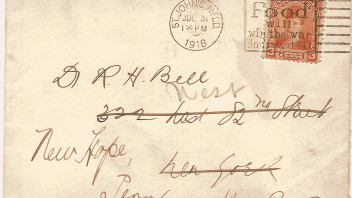 ST. JOHN'S NFLD.
JUL 31
PM
1918
food
will
win the war
Dr. R. H. Bell
West
322 West 82nd Street
New Hope,
New York